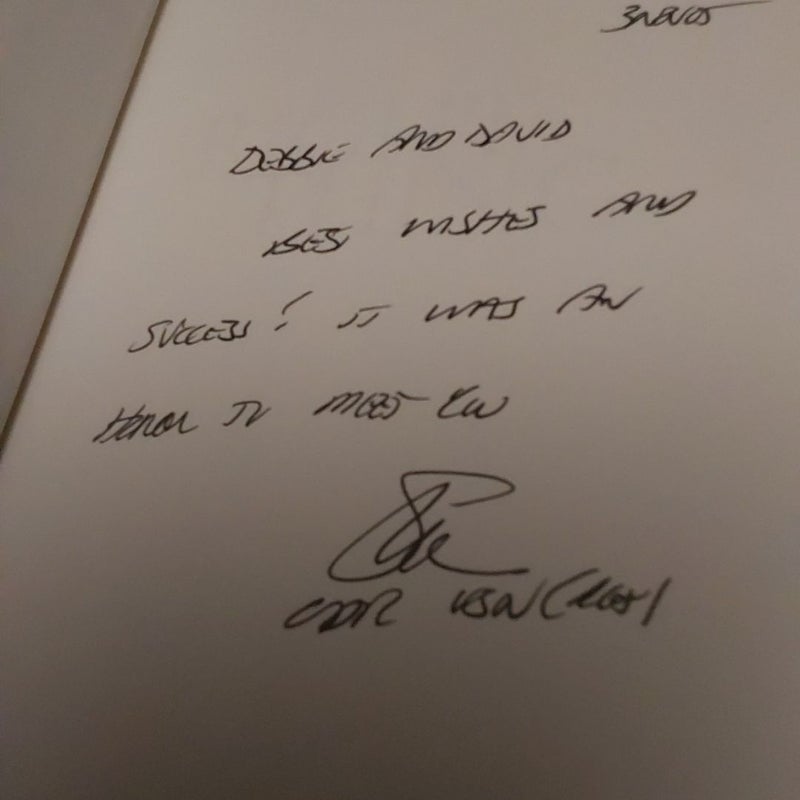 3NOV05
DEBBIE AND DAVID
BEST WISHES AND
SUCCESS! IT WAS AN
HONOR TO MEET YOU
CDR USN (RET)